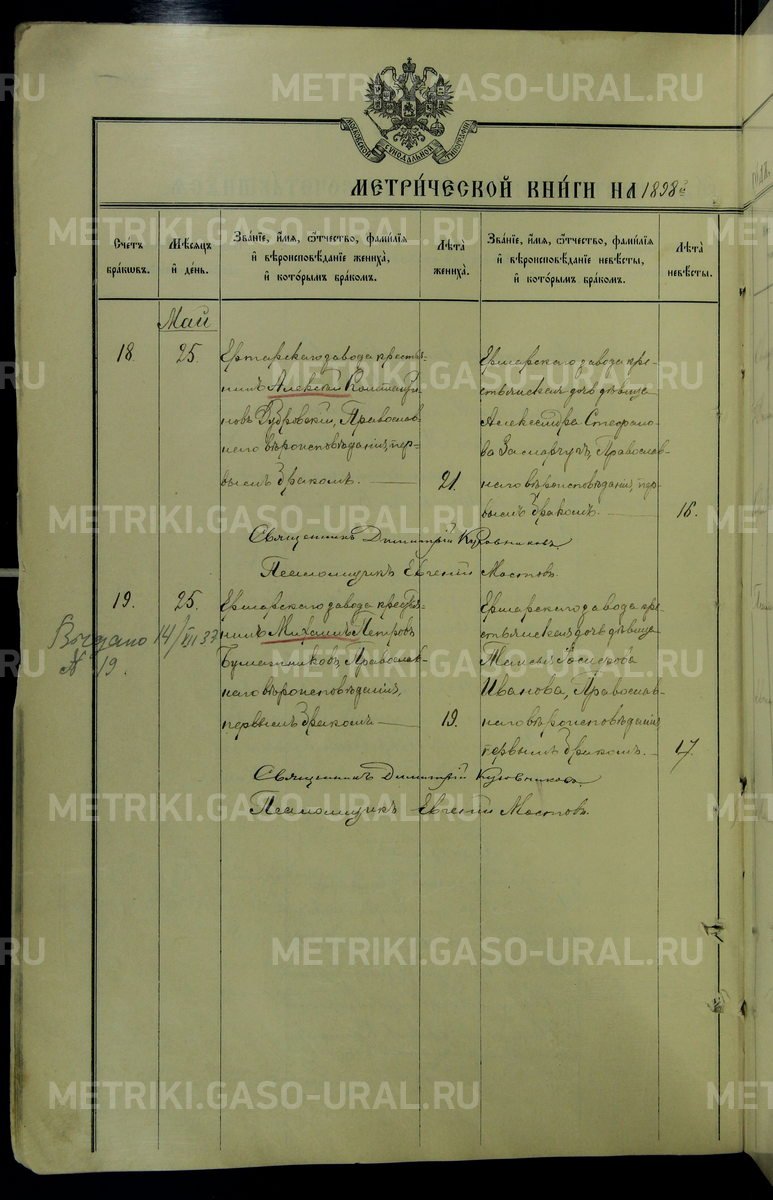 METRIKI.GASO-URAL.RU
МОСКОВСКОЙ СУНОДАЛЬНОЙ ТИПОГРАФІИ
МЕТРИ́ЧЕСКОЙ КНИ́ГИ НА 1898й
Сче́тъ бра́кωвъ.
Мѣ́сяцъ и҆ де́нь.
Зва́нїе, и҆́мя, ѻ҆́тчество, фами́лїя и҆ вѣроисповѣ́данїе жениха̀, и҆ кото́рымъ бра́комъ.
Лѣ́та жениха̀.
Зва́нїе, и҆́мя, ѻ҆́тчество, фами́лїя и҆ вѣроисповѣ́данїе невѣ́сты, и҆ кото́рымъ бра́комъ.
Лѣ́та невѣ́сты.
Май
18
25.
Ертарскаго завода крестья-
нинъ Алексѣй Константи-
новъ Дубровскій, Православ-
наго вѣроисповѣданія, пер-
вымъ бракомъ.
21.
Ертарскаго завода кре-
стьянская дочь дѣвица
Александра Стефано-
ва Православ-
наго вѣроисповѣданія, пер-
вымъ бракомъ.
16.
Священникъ Димитрій Кузовниковъ.
Псаломщикъ Евгеній Мостовъ.
19.
25.
Ертарскаго завода крестья-
нинъ Михаилъ Петровъ
Бумажниковъ, Православ-
наго вѣроисповѣданія,
первымъ бракомъ
19.
Ертарскаго завода кре-
стьянская дочь дѣвица
Таисья
Иванова, Православ-
наго вѣроисповѣданія,
первымъ бракомъ.
17.
14/VII 33
№ 19.
Священникъ Димитрій Кузовниковъ.
Псаломщикъ Евгеній Мостовъ.